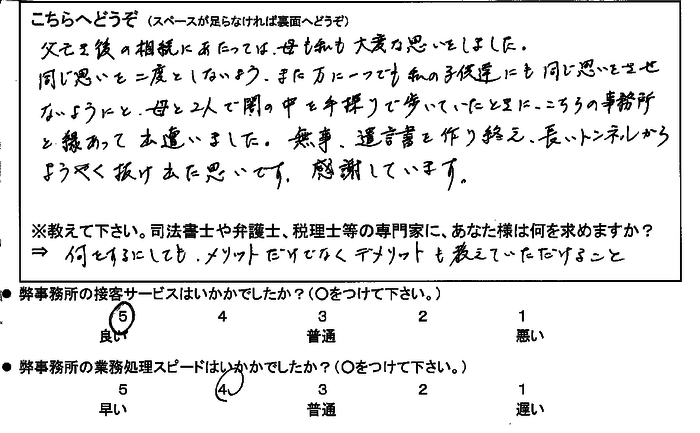 こちらへどうぞ(スペースが足らなければ裏面へどうぞ)
父亡き後の相続にあたっては、母も私も大変な思いをしました。
同じ思いを二度としないよう、また万に一つでも私の子供達にも同じ思いをさせ
ないようにと、母と2人で闇の中を手探りで歩いていたときに、こちらの事務所
と縁あって出遭いました。無事、遺言書を作り終え、長いトンネルから
ようやく抜け出た思いです。感謝しています。
※教えて下さい。司法書士や弁護士、税理士等の専門家に、あなた様は何を求めますか?
⇒ 何をするにしても、メリットだけでなくデメリットも教えていただけること
● 弊事務所の接客サービスはいかかでしたか?(〇をつけて下さい。)
5 4 3 2 1
良い 普通 悪い
● 弊事務所の業務処理スピードはいかかでしたか?(〇をつけて下さい。)
5 4 3 2 1
早い 普通 遅い